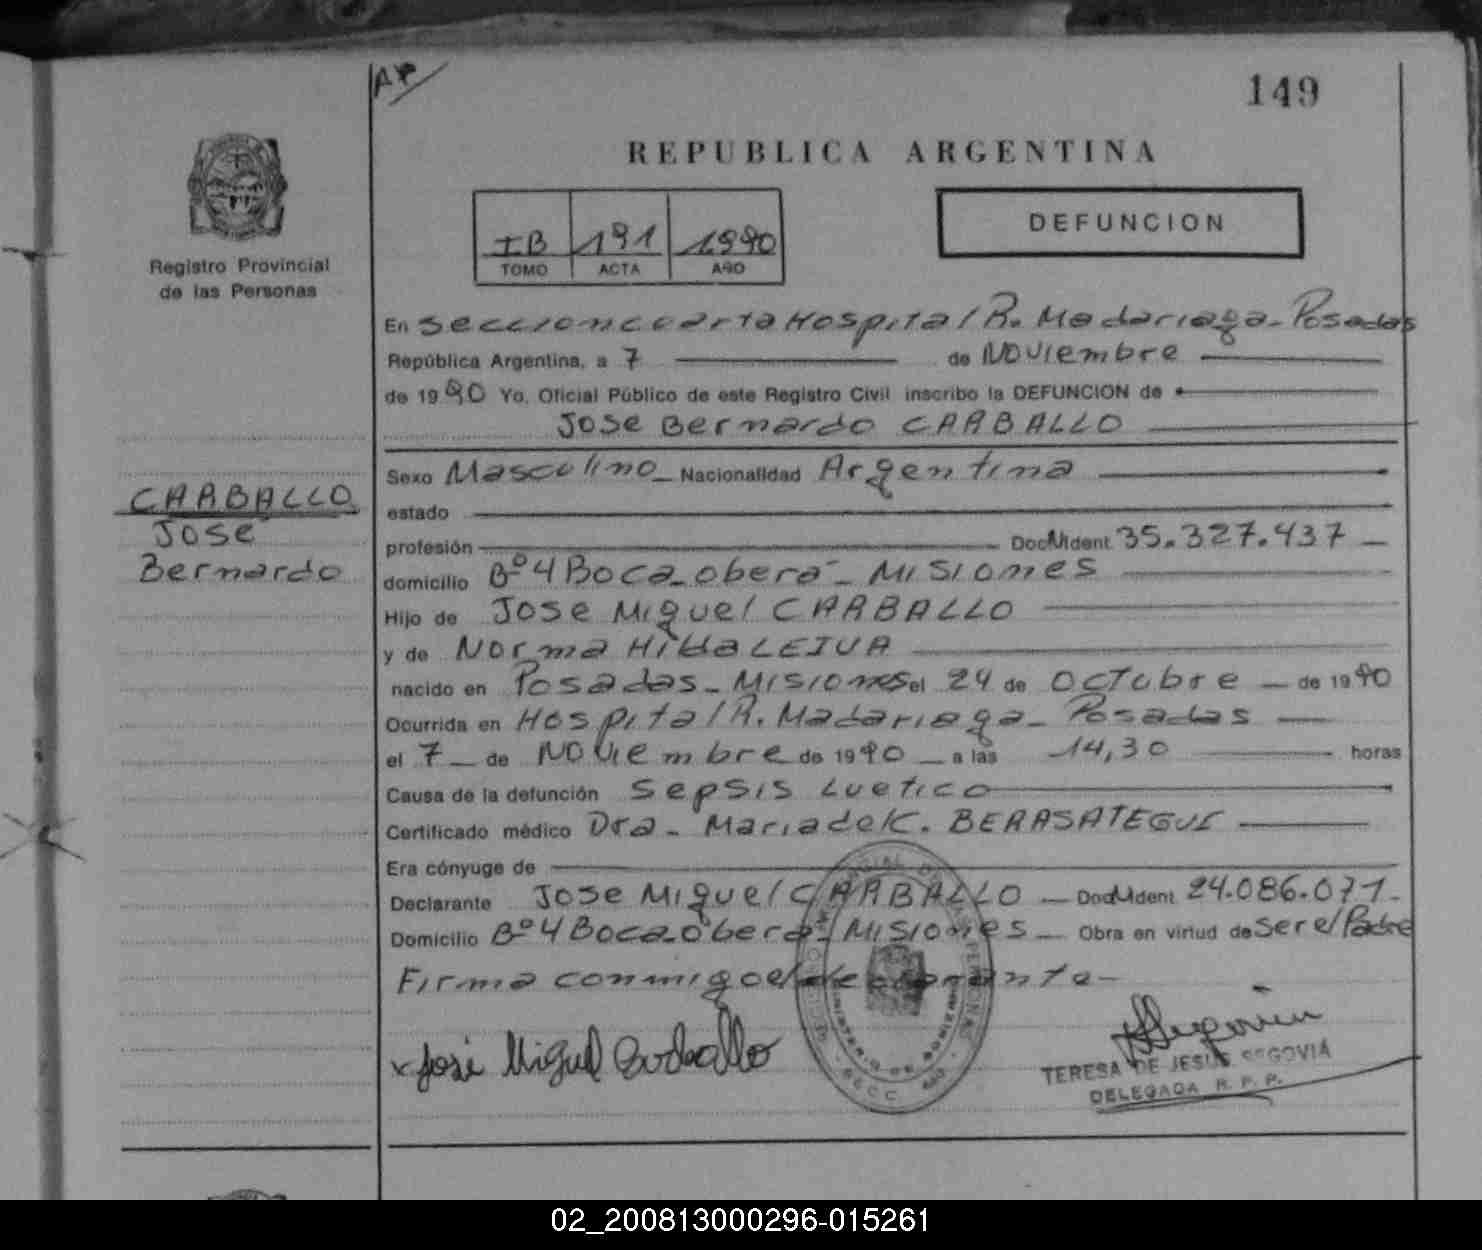 149
REPUBLICA ARGENTINA
Registro Provincial
de las Personas
IB 191 1990
TOMO ACTA AÑO
DEFUNCION
En Seccion cuarta Hospital R. Madariaga - Posadas
República Argentina, a 7 de Noviembre
de 1990 Yo, Oficial Público de este Registro Civil inscribo la DEFUNCION de
Jose Bernardo CARBALLO
CARBALLO
Jose
Bernardo
Sexo Masculino - Nacionalidad Argentina
estado
profesión Doc. Ident. 35.327.437 -
domicilio Bº 4 Boca - Obera - Misiones
Hijo de Jose Miguel CARBALLO
y de Norma Hilda LEIVA
nacido en Posadas - Misiones el 24 de Octubre - de 1990
Ocurrida en Hospital R. Madariaga - Posadas
el 7 - de Noviembre de 1990 - a las 14,30 horas
Causa de la defunción Sepsis Luetico
Certificado médico Dra - Maria del C. BERASATEGUI
Era cónyuge de
Declarante Jose Miguel CARBALLO - Doc. Ident. 24.086.071 -
Domicilio Bº 4 Boca - Obera - Misiones - Obra en virtud de Ser el Padre
Firma conmigo el declarante -
x José Miguel Carballo
TERESA DE JESUS SEGOVIA
DELEGADA R. P. P.
02_200813000296-015261